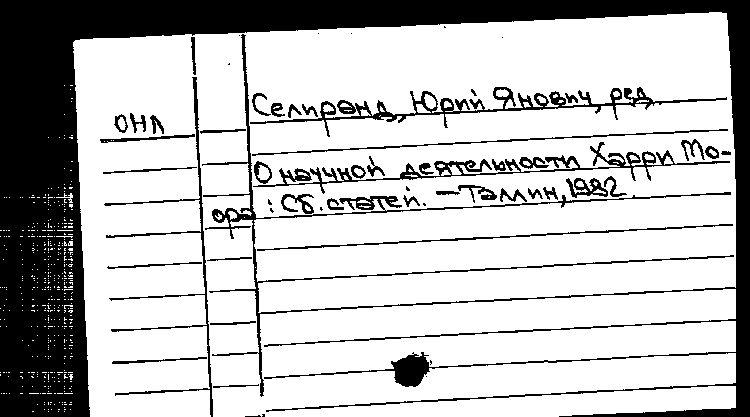 Селиранд, Юрий Янович, ред.
ОНЛ
О научной деятельности Хэрри Мо-
ора : Сб. статей. — Таллин, 1982.